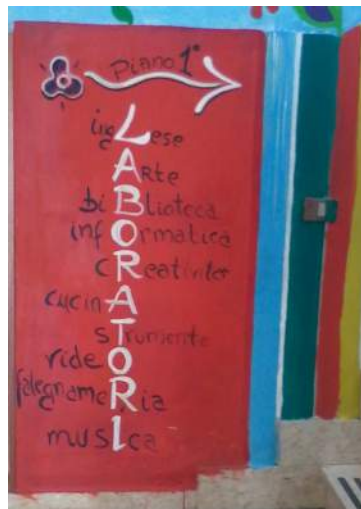 Piano 1°
ingLese
ARte
biBlioteca
infOrmatica
cReatività
cucinA
sTrumenti
videO
falegnameRia
musIca